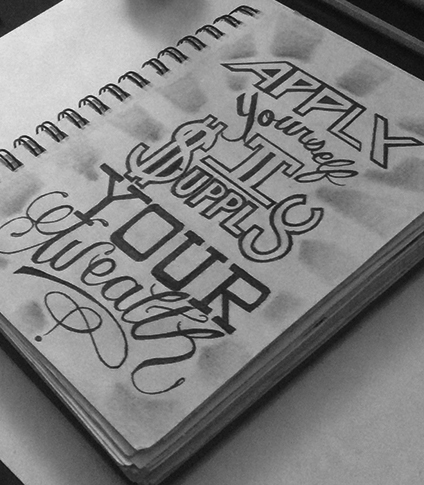 APPLY
Yourself
IT
$UPPLYS
YOUR
Wealth